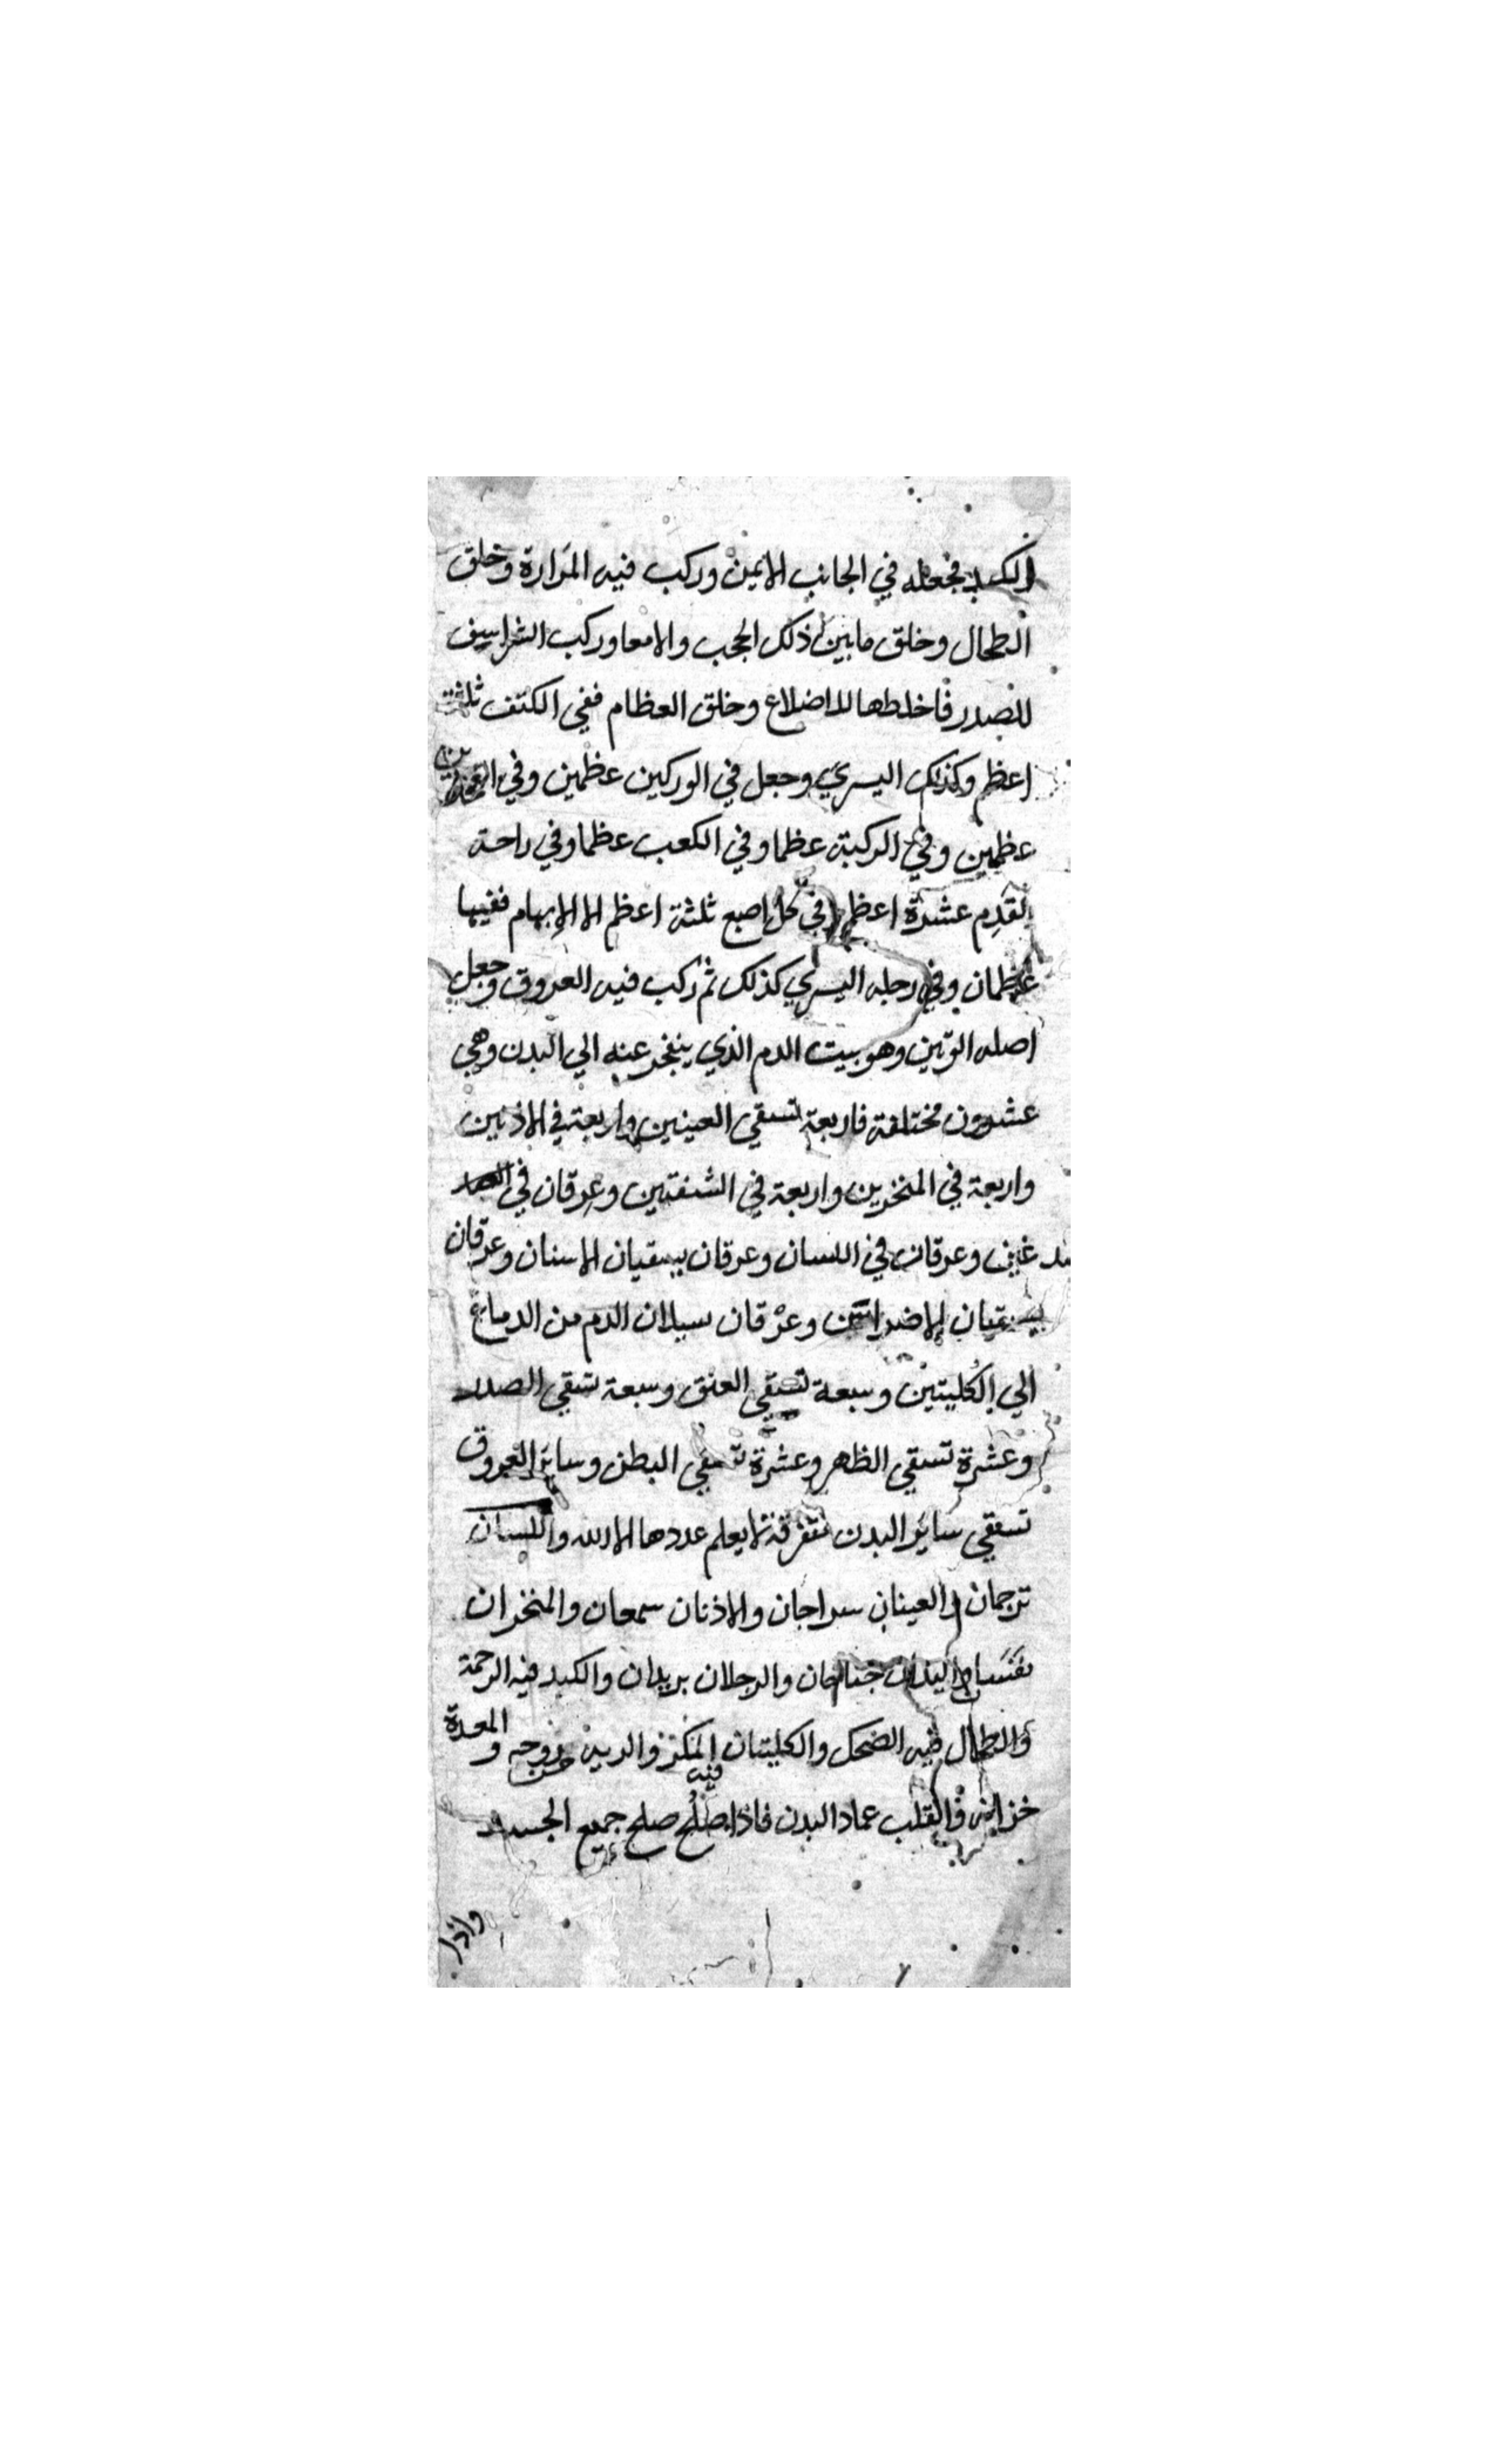 الكبد فجعله في الجانب الايمن وركب فيه المرارة وخلق
الطحال وخلق ما بين ذلك الحجب والامعا وركب الشراسيف
للصدر فاخلطها للاضلاع وخلق العظام ففي الكتف ثلثة
اعظم وكذلك اليسري وجعل في الوركين عظمين وفي الفخذين
عظمين وفي الركبة عظما وفي الكعب عظما وفي راحة
القدم عشرة اعظم في كل اصبع ثلثة اعظم الا الابهام ففيها
عظمان وفي رجله اليسري كذلك ثم ركب فيه العروق وجعل
اصله الوتين وهو بيت الدم الذي ينفجر عنه الي البدن وهي
عشرون مختلفة فاربعة تسقي العينين واربعة في الاذنين
واربعة في المنخرين واربعة في الشفتين وعرقان في
صدغين وعرقان في اللسان وعرقان يسقيان الاسنان وعرقان
يسقيان الاضراس وعرقان سيلان الدم من الدماغ
الي الكليتين وسبعة تسقي العنق وسبعة تسقي الصدر
وعشرة تسقي الظهر وعشرة تسقي البطن وساير العروق
تسقي ساير البدن متفرقة لا يعلم عددها الا الله واللسان
ترجمان والعينان سراجان والاذنان سمعان والمنخران
نفسان واليدان جناحان والرجلان بريدان والكبد فيه الرحمة
والطحال فيه الضحك والكليتان فيه المكر والرية والمعدة
خزانة والقلب عماد البدن فاذا صلح صلح جميع الجسد
واذا